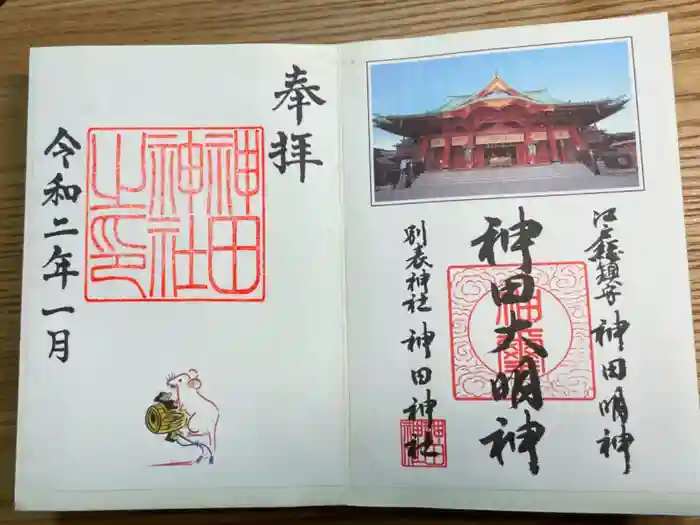 江戸総鎮守 神田明神
神田大明神
神璽
別表神社 神田神社
神田神社
奉拝
神田
神社
之印
令和二年一月